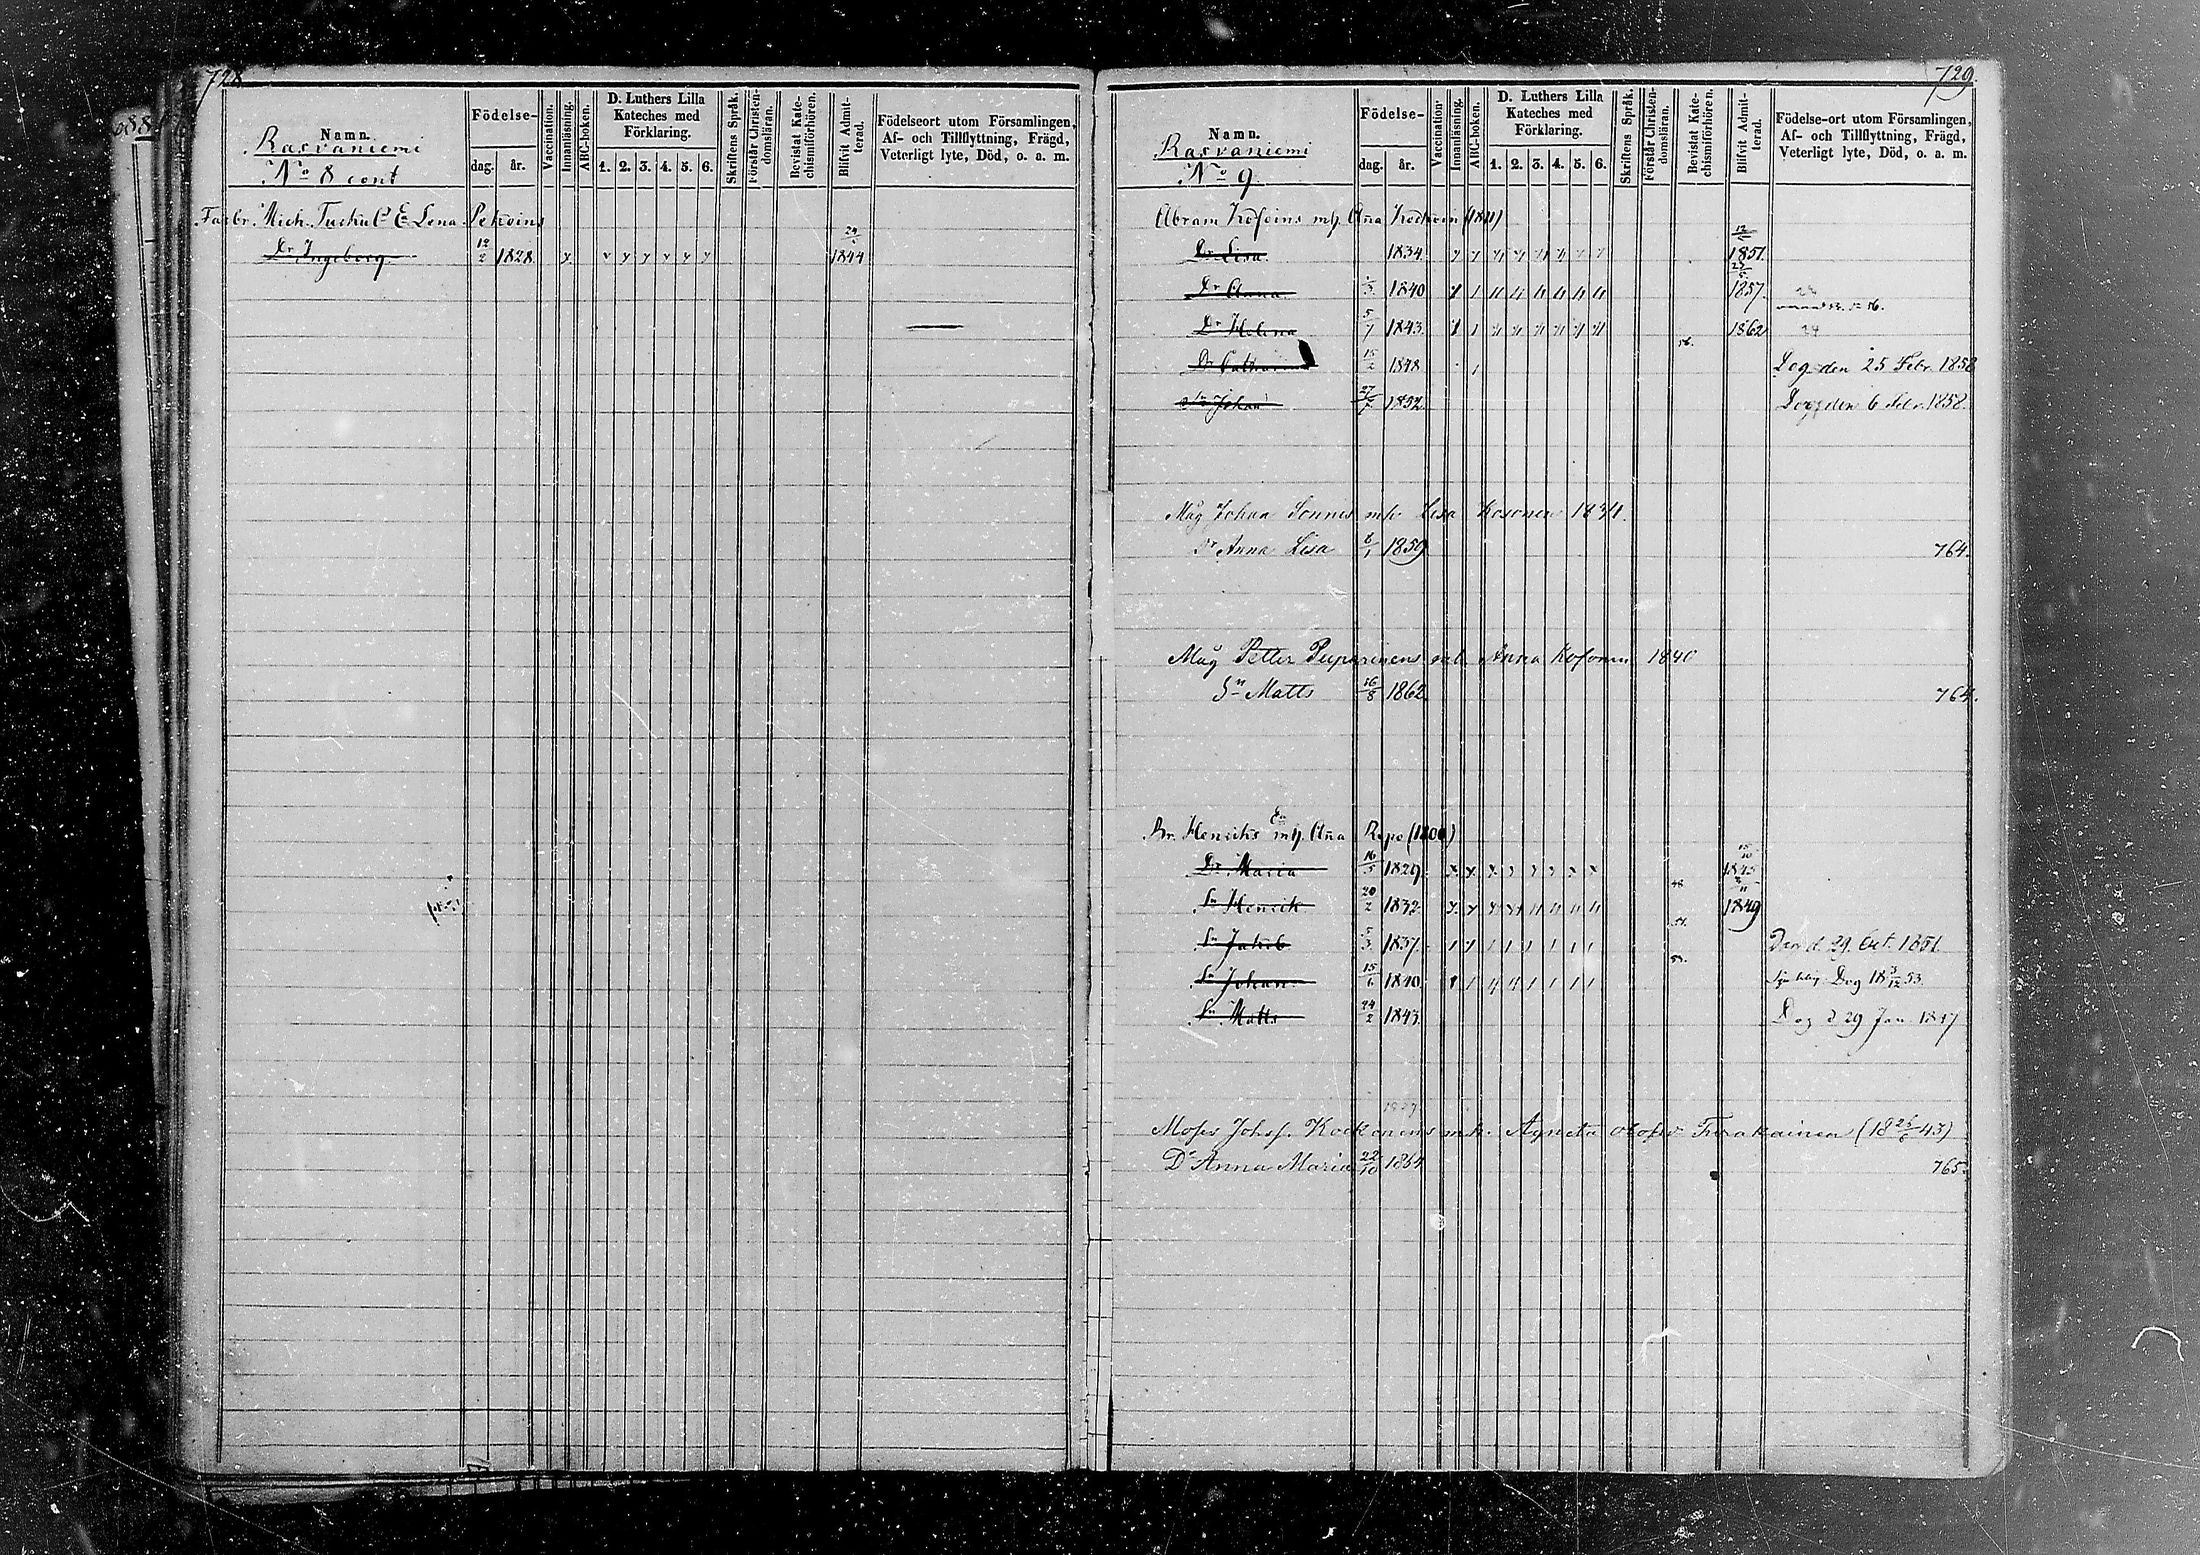 728
Namn.
Rasvaniemi
No 8 cont
Födelse-
dag. år.
Vaccination.
Innanläsning.
ABC-boken.
D. Luthers Lilla
Kateches med
Förklaring.
1. 2. 3. 4. 5. 6.
Skriftens Språk.
Förstår Christen-
domsläran.
Bevistat Kate-
chismiförhören.
Blifvit Admit-
terad.
Födelseort utom Församlingen,
Af- och Tillflyttning, Frägd,
Veterligt lyte, Död, o. a. m.
Farbr. Mich. Lena Pekoins
Dr Ingeborg 12/2 1828 1844
729.
Namn.
Rasvaniemi
No 9
Födelse-
dag. år.
Vaccination.
Innanläsning.
ABC-boken.
D. Luthers Lilla
Kateches med
Förklaring.
1. 2. 3. 4. 5. 6.
Skriftens Språk.
Förstår Christen-
domsläran.
Bevistat Kate-
chismiförhören.
Blifvit Admit-
terad.
Födelse-ort utom Församlingen,
Af- och Tillflyttning, Frägd,
Veterligt lyte, Död, o. a. m.
Abram mh. Aña (1811)
Dr Lisa 1834 1851
Dr Anna 1840 1857
Dr Helena 5/7 1843 1862
Dr 15/2 1848 56. Dog den 25 Febr. 1858
Sn Johan 27/7 1852 Dog den 6 1858.
Måg Johan Sonnis mh Lisa Kosonen 1834.
Dr Anna Lisa 8/1 1859 764.
Måg Petter Anna Kosonen 1840
Sn Matts 16/8 1862. 764.
Br. Henriks En mh. Aña Repo (1800)
Dr Maria 16/5 1829. 15/10 1845
Sn Henrik 20/2 1832 48. 1849
Sn Jakob 5/3 1837. 51. d. 29. Oct. 1851
Sn Johan 15/6 1840 53. Dog 18 3/12 53.
Sn Matts 24/2 1843 Dog d 29 Jan 1847
Moses Johsf. Kockonens mh. Agneta Turakainen (18 25/6 43)
Dr Anna Maria 22/10 1864 765.